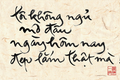 tôi không ngủ
mơ đâu
ngày hôm nay
đẹp lắm thật mà